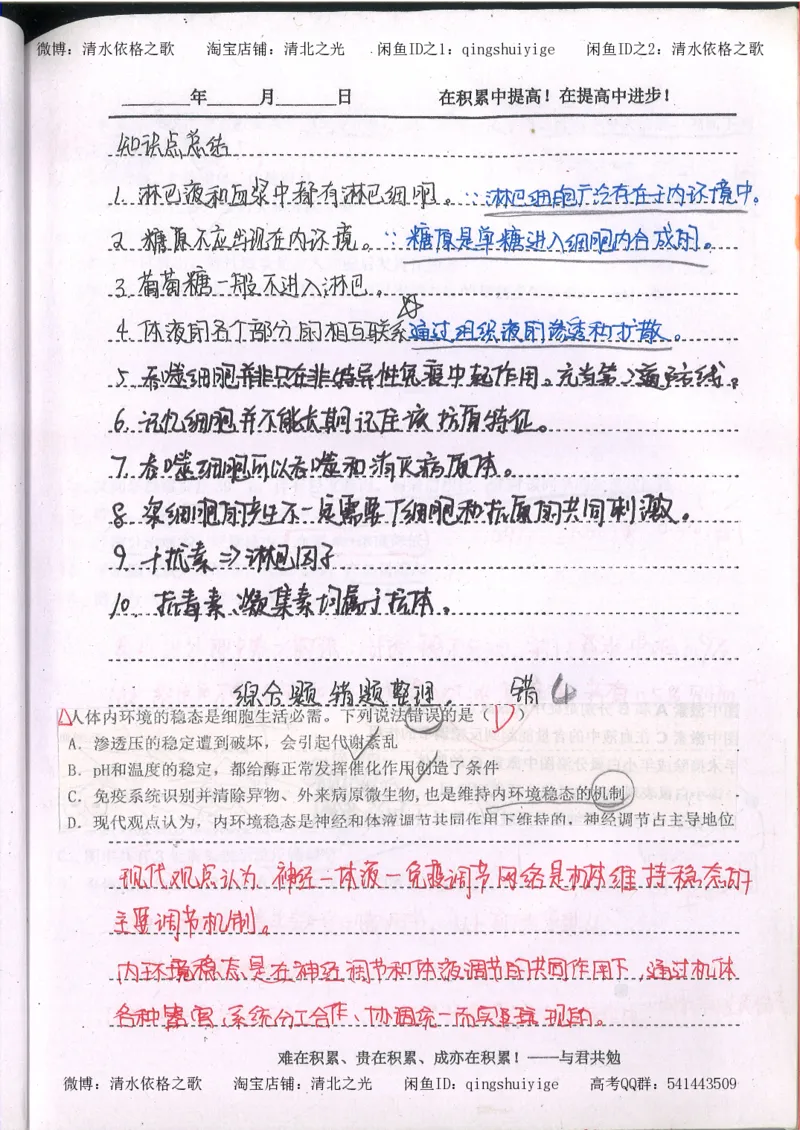 微博：清水依格之歌 淘宝店铺：清北之光 闲鱼ID之1：qingshuiyige 闲鱼ID之2：清水依格之歌
______年______月______日 在积累中提高！在提高中进步！
知识点总结
1. 淋巴液和血浆中都有淋巴细胞。∵淋巴细胞广泛存在于内环境中。
2. 糖原不应出现在内环境。∵糖原是单糖进入细胞内合成的。
3. 葡萄糖一般不进入淋巴。
4. 体液的各个部分的相互联系通过组织液的渗透和扩散。
5. 吞噬细胞并非只在非特异性免疫中起作用。充当第 道防线。
6. 记忆细胞并不能长期记住该抗原特征。
7. 吞噬细胞可以吞噬和消灭病原体。
8. 浆细胞的产生不一定需要T细胞和抗原的共同刺激。
9. 干扰素⇒淋巴因子
10. 抗毒素、凝集素均属于抗体。
综合题错题整理。 错4
△人体内环境的稳态是细胞生活必需。下列说法错误的是（ D ）
A．渗透压的稳定遭到破坏，会引起代谢紊乱
B．pH和温度的稳定，都给酶正常发挥催化作用创造了条件
C．免疫系统识别并清除异物、外来病原微生物,也是维持内环境稳态的机制
D．现代观点认为，内环境稳态是神经和体液调节共同作用下维持的，神经调节占主导地位
现代观点认为 神经－体液－免疫调节网络是机体维持稳态的
主要调节机制。
内环境稳态是在神经调节和体液调节的共同作用下，通过机体
各种器官、系统分工合作、协调统一而实现的。
难在积累、贵在积累、成亦在积累！——与君共勉
微博：清水依格之歌 淘宝店铺：清北之光 闲鱼ID：qingshuiyige 高考QQ群：541443509